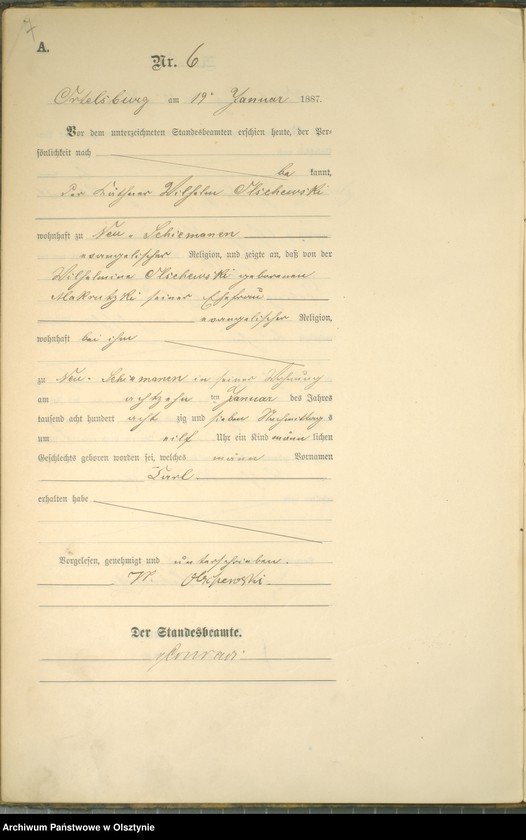 7
A.
Nr. 6
Ortelsburg am 19n Januar 1887.
Vor dem unterzeichneten Standesbeamten erschien heute, der Per-
sönlichkeit nach
be kannt,
der Käthner Wilhelm
wohnhaft zu Neu-Schiemanen
evangelischer Religion, und zeigte an, daß von der
Wilhelmine geborenen
seiner Ehefrau
evangelischer Religion,
wohnhaft bei ihm
zu Neu-Schiemanen in seiner Wohnung
am achtzehn ten Januar des Jahres
tausend acht hundert acht zig und sieben Nachmittag s
um eilf Uhr ein Kind männ lichen
Geschlechts geboren worden sei, welches Vornamen
Carl
erhalten habe
Vorgelesen, genehmigt und unterschrieben.
W.
Der Standesbeamte.
Archiwum Państwowe w Olsztynie